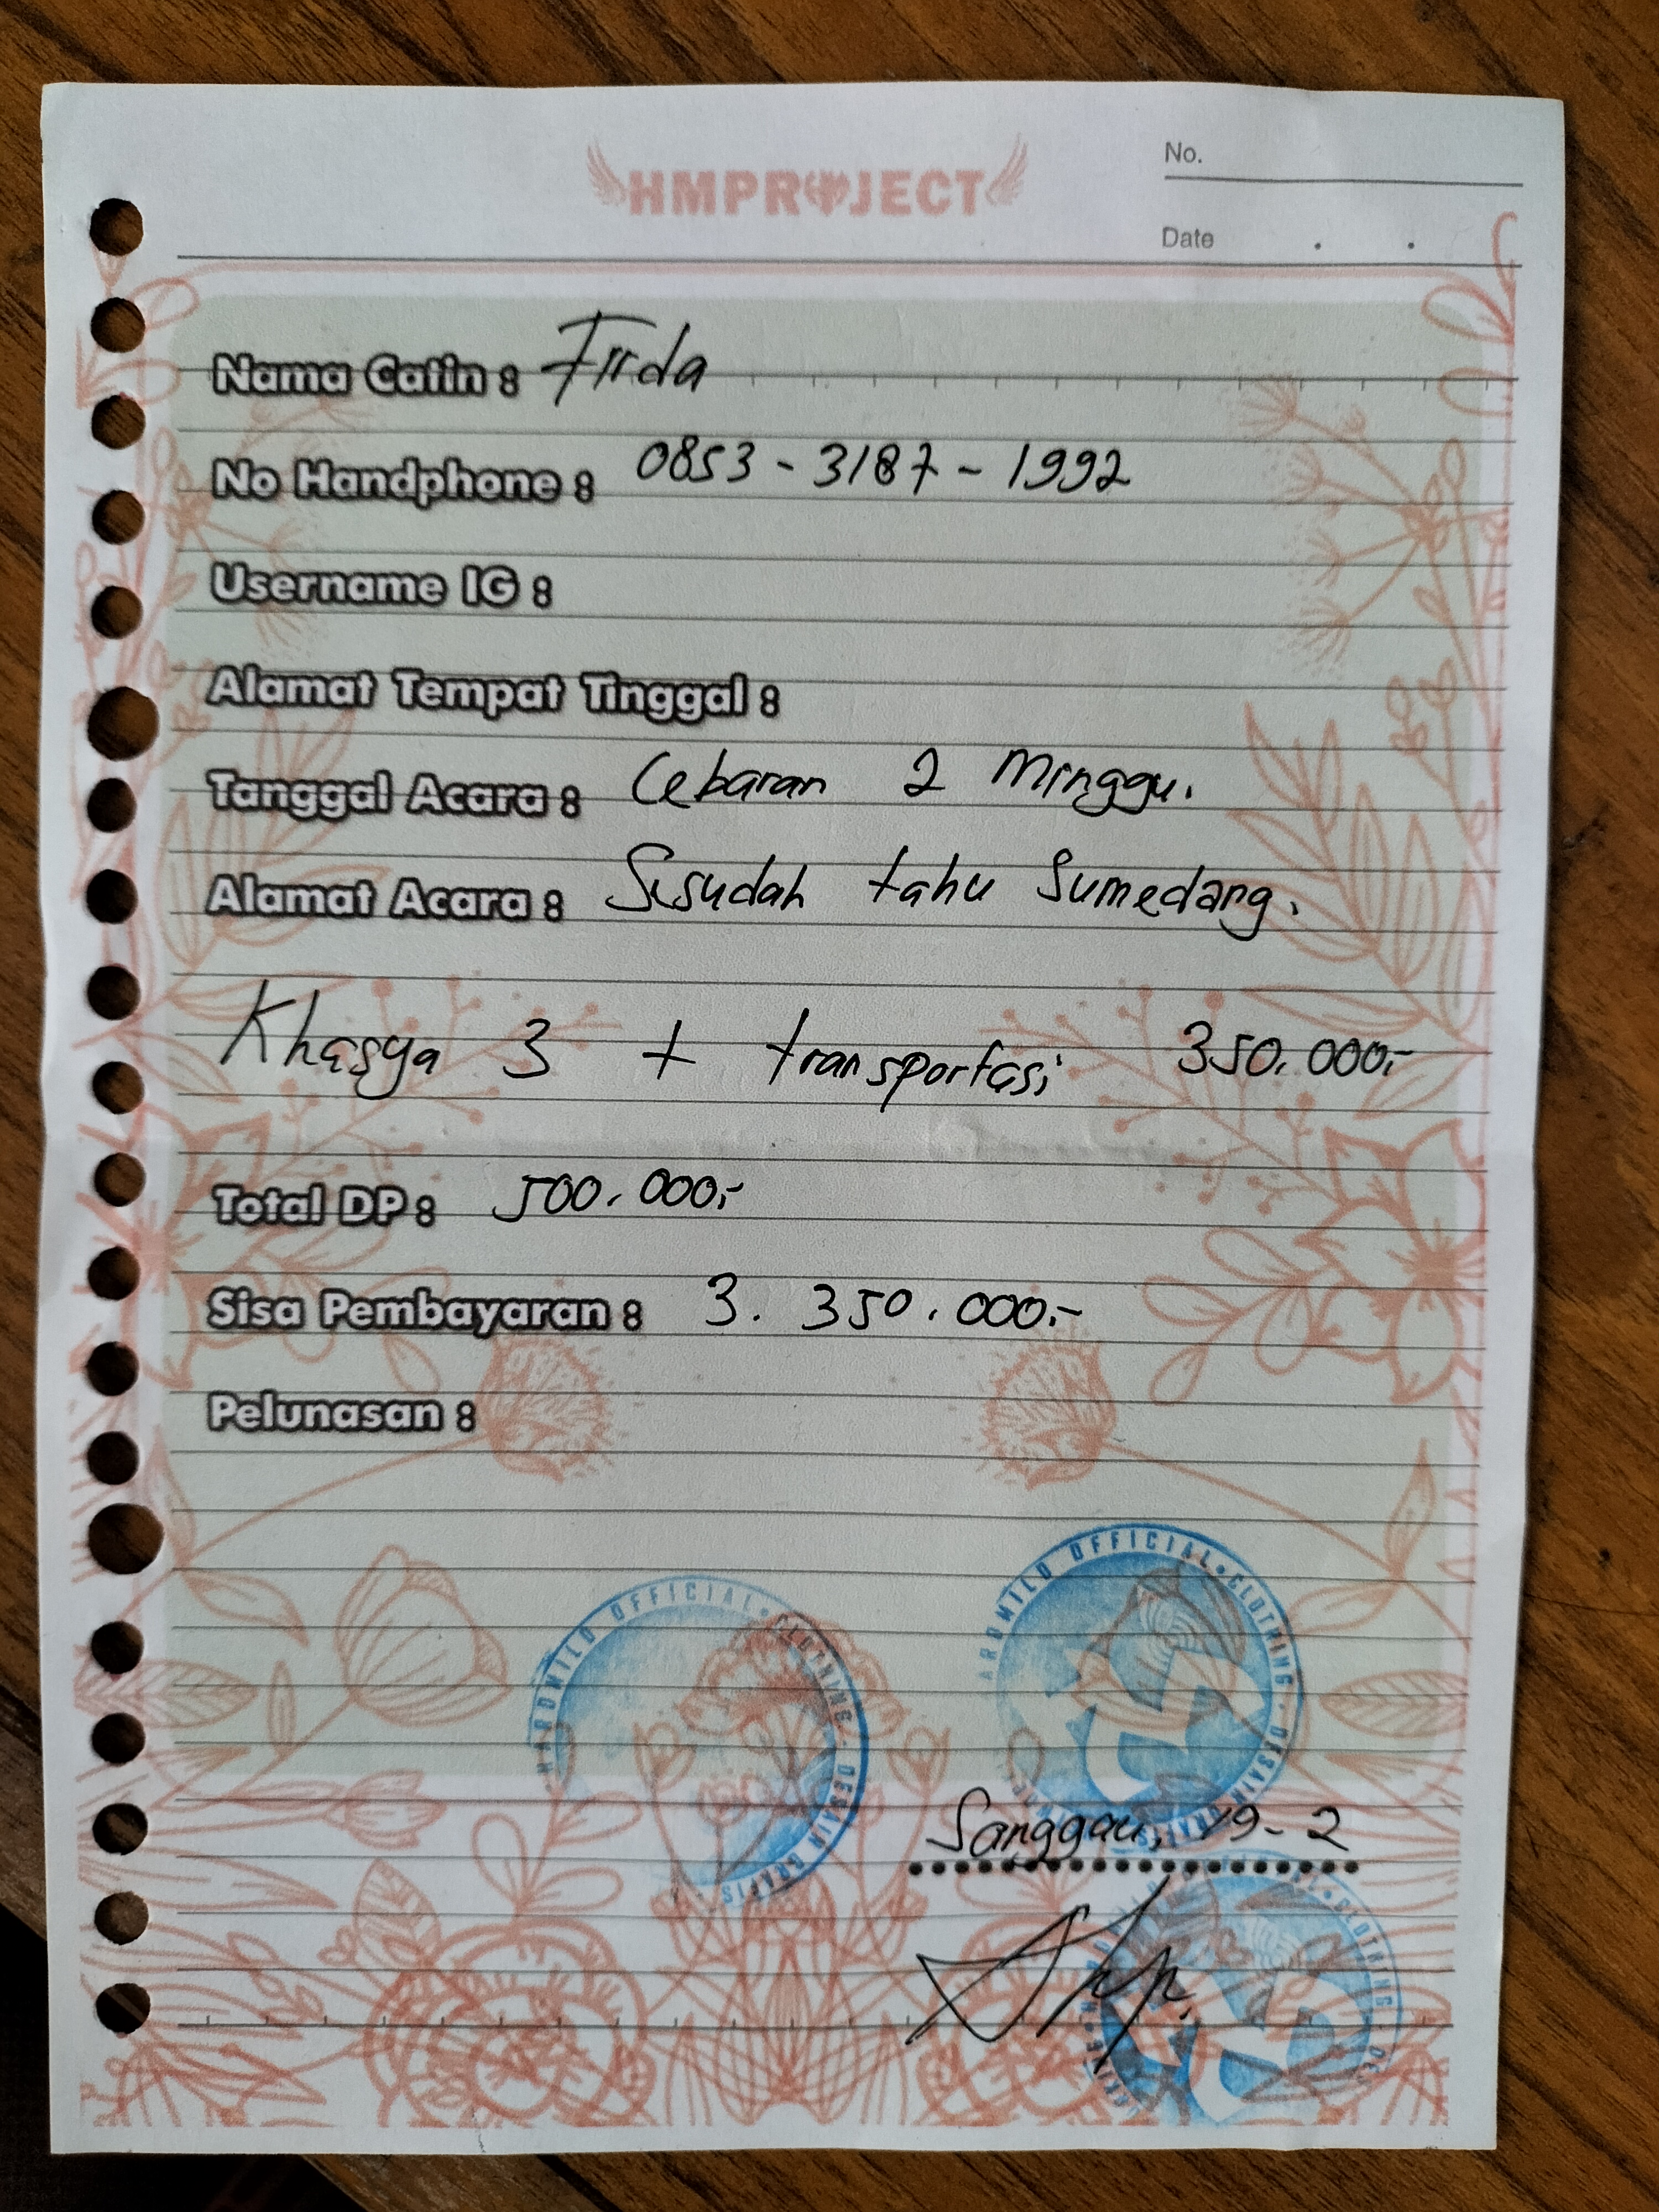 HMPROJECT
No.
Date . .
Nama Catin : Firda
No Handphone : 0853 - 3187 - 1992
Username IG :
Alamat Tempat Tinggal :
Tanggal Acara : Lebaran 2 Minggu.
Alamat Acara : Sisudah tahu Sumedang.
Khasya 3 + transportasi 350.000,-
Total DP : 500.000,-
Sisa Pembayaran : 3.350.000,-
Pelunasan :
HARDMILO OFFICIAL • CLOTHING • DESAIN GRAFIS
ARDMILO OFFICIAL • CLOTHING • DESAIN GRAFIS
Sanggau, 19-2